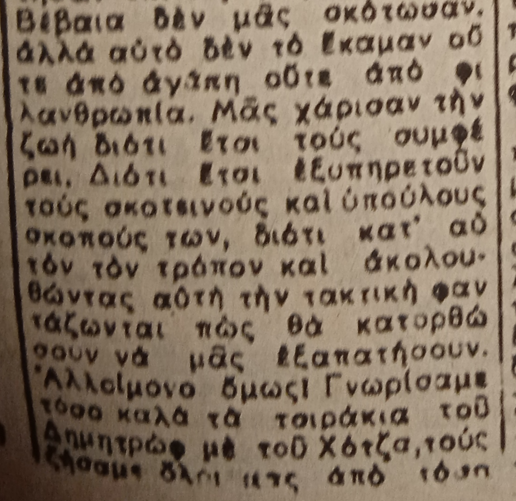 Βέβαια δὲν μᾶς σκότωσαν.
ἀλλὰ αὐτὸ δὲν τὸ ἔκαμαν οὔ
τε ἀπὸ ἀγάπη οὔτε ἀπὸ φι
λανθρωπία. Μᾶς χάρισαν τὴν
ζωὴ διότι ἔτσι τοὺς συμφέ
ρει. Διότι ἔτσι ἐξυπηρετοῦν
τοὺς σκοτεινοὺς καὶ ὑπούλους
σκοποὺς των, διότι κατ' αὐ
τὸν τὸν τρόπον καὶ ἀκολου-
θώντας αὐτὴ τὴν τακτικὴ φαν
τάζωνται πὼς θὰ κατορθώ
σουν νὰ μᾶς ἐξαπατήσουν.
Ἀλλοίμονο ὅμως! Γνωρίσαμε
τόσο καλὰ τὰ τσιράκια τοῦ
Δημητρὼφ μὲ τοῦ Χότζα, τοὺς
ζήσαμε ἀπὸ τόση